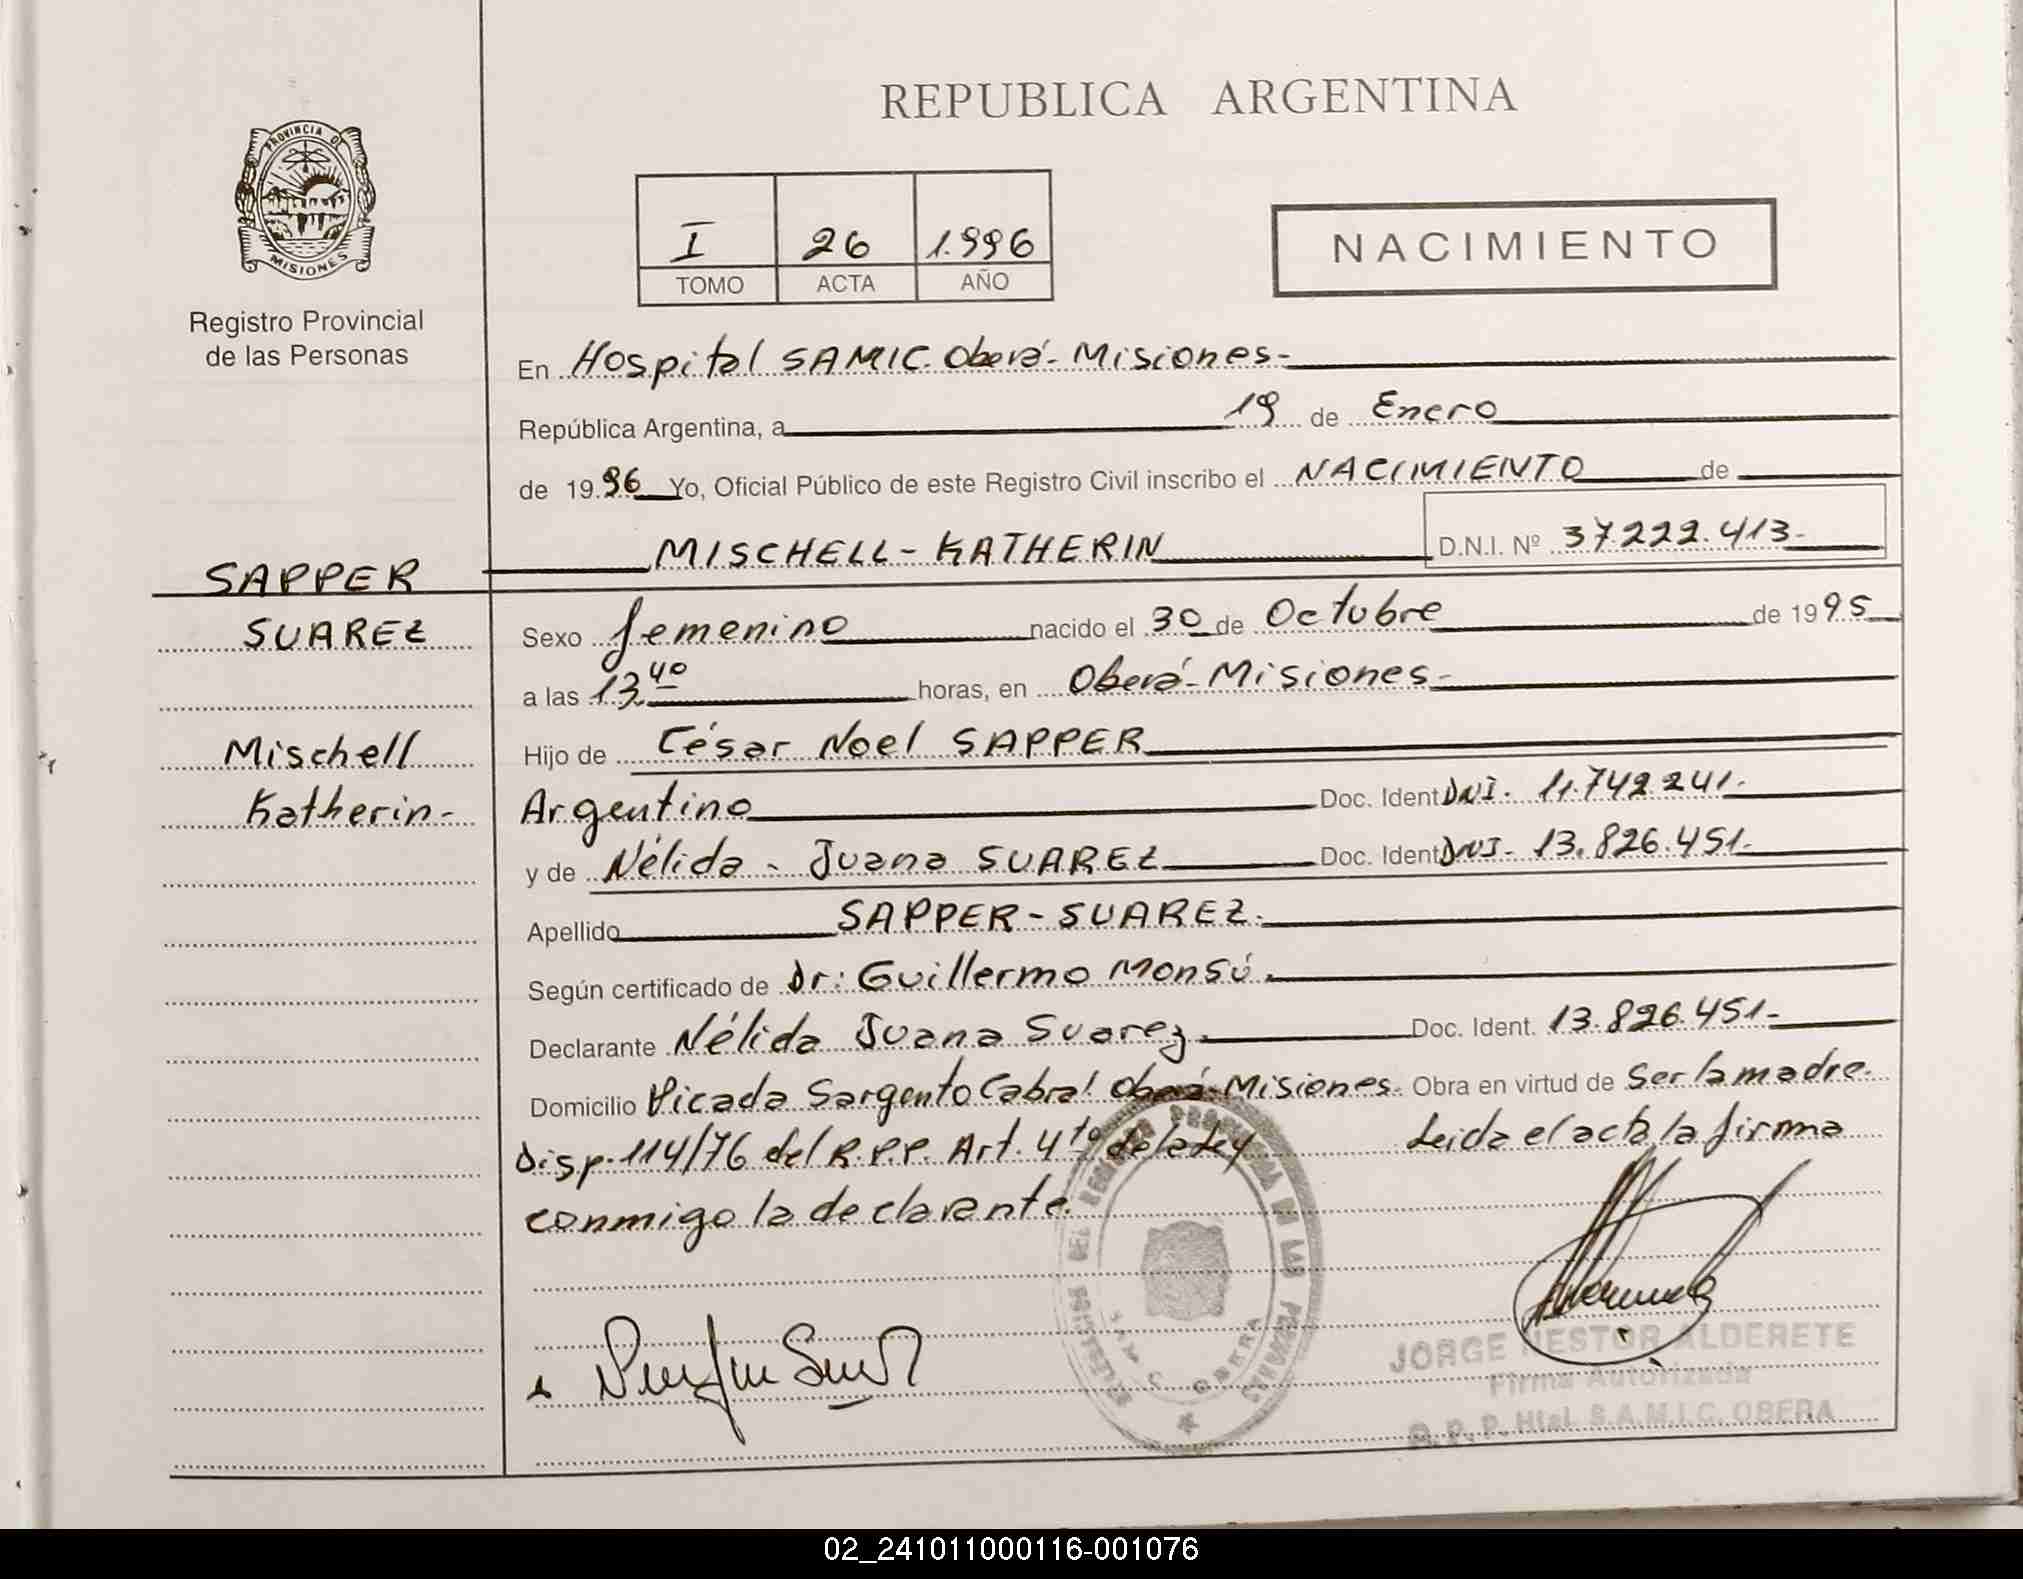 REPUBLICA ARGENTINA
PROVINCIA DE
MISIONES
Registro Provincial
de las Personas
I 26 1.996
TOMO ACTA AÑO
NACIMIENTO
En Hospital SAMIC. Oberá - Misiones -
República Argentina, a 19 de Enero
de 19 96 Yo, Oficial Público de este Registro Civil inscribo el NACIMIENTO de
MISCHELL - KATHERIN D.N.I. Nº 37.222.413 -
SAPPER
SUAREZ
Mischell
Katherin -
Sexo femenino nacido el 30 de Octubre de 1995
a las 13.40 horas, en Oberá - Misiones -
Hijo de César Noel SAPPER
Argentino Doc. Ident DNI. 11.742.241 -
y de Nélida - Juana SUAREZ Doc. Ident DNI - 13.826.451 -
Apellido SAPPER - SUAREZ.
Según certificado de Dr: Guillermo Monsú.
Declarante Nélida Juana Suarez Doc. Ident. 13.826.451 -
Domicilio Picada Sargento Cabral Oberá - Misiones. Obra en virtud de Ser la madre.
Disp. 114/76 del R.P.P. Art. 4to de la Ley Leida el acta, la firma
conmigo la declarante.
REGISTRO PROVINCIAL DE LAS PERSONAS
OBERA
JORGE NESTOR ALDERETE
Firma Autorizada
R. P. P. Htal. S.A.M.I.C. OBERA
02_241011000116-001076